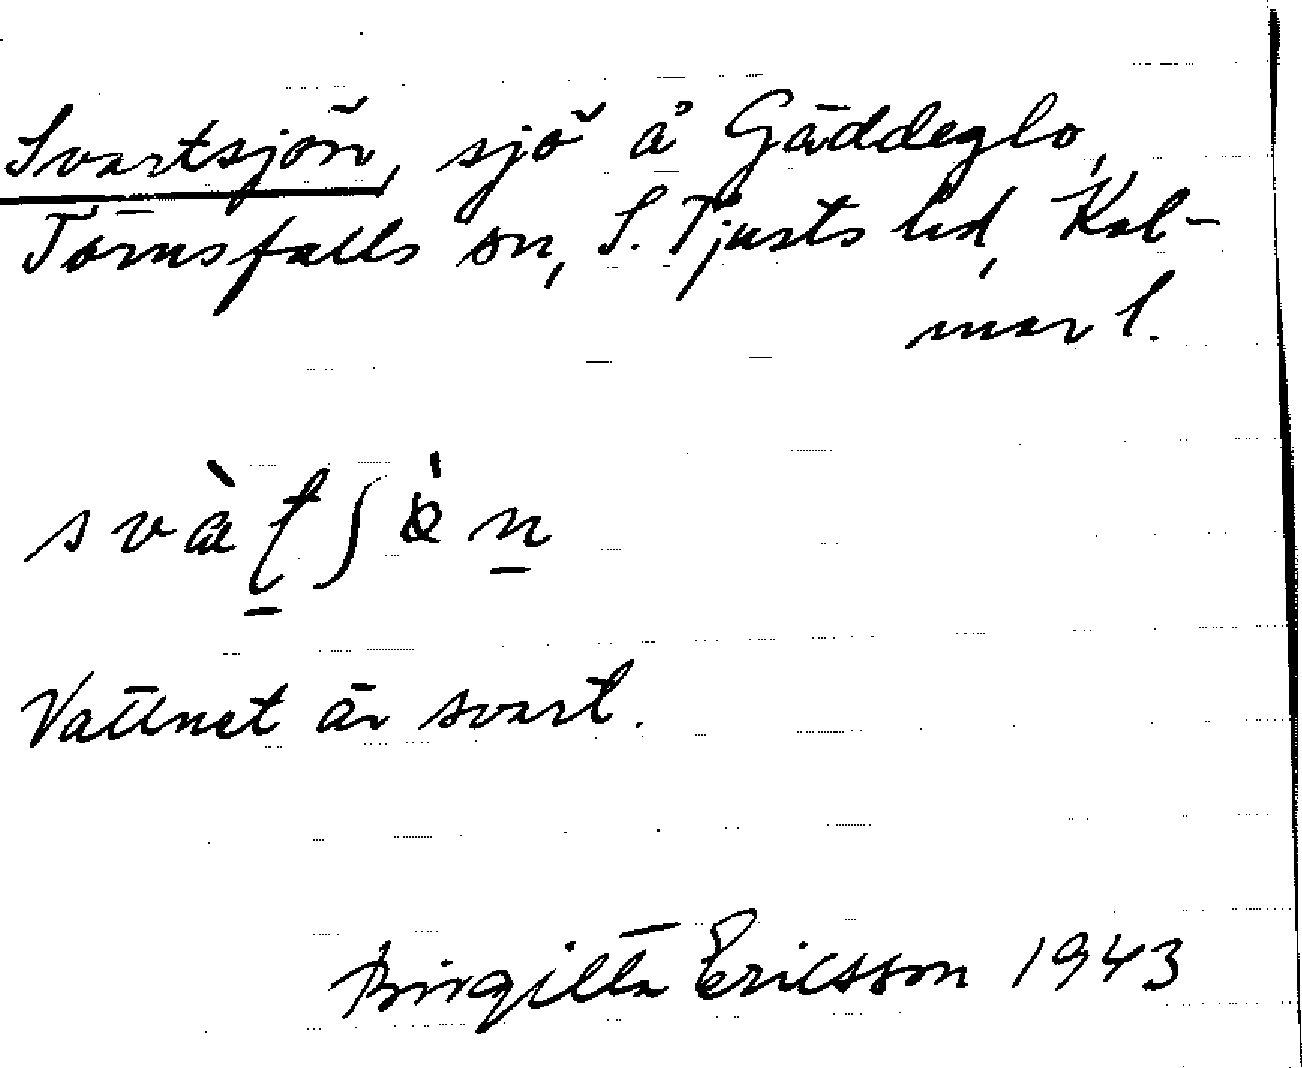 Svartsjön, sjö å Gäddeglo,
Törnsfalls sn, S. Tjusts hd, Kal-
mar l.
Vattnet är svart.
Birgitta Ericsson 1943